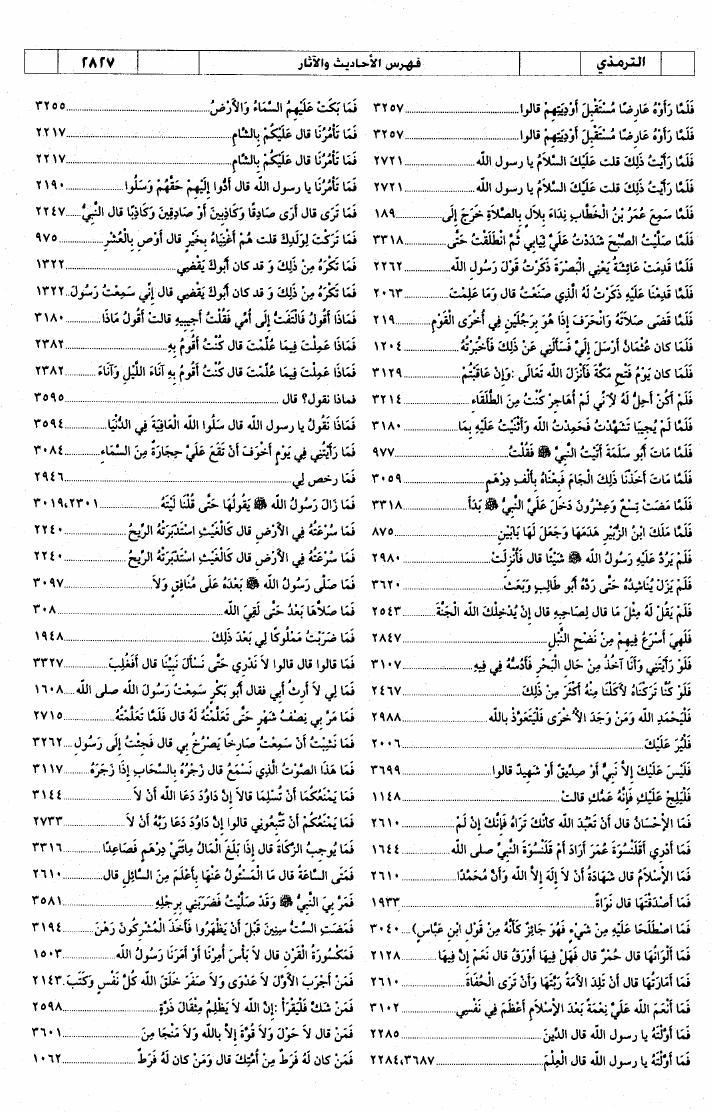 الترمذي فهرس الأحاديث والآثار ٢٨٢٧
فَلَمَّا رَأَوْهُ عَارِضًا مُسْتَقْبِلَ أَوْدِيَتِهِمْ قالوا ٣٢٥٧
فَلَمَّا رَأَوْهُ عَارِضًا مُسْتَقْبِلَ أَوْدِيَتِهِمْ قالوا ٣٢٥٧
فَلَمَّا رَأَيْتُ ذَلِكَ قلت عَلَيْكَ السَّلاَمُ يا رسول الله ٢٧٢١
فَلَمَّا رَأَيْتُ ذَلِكَ قلت عَلَيْكَ السَّلاَمُ يا رسول الله ٢٧٢١
فَلَمَّا سَمِعَ عُمَرُ بْنُ الْخَطَّابِ نِدَاءَ بِلاَلٍ بِالصَّلاَةِ خَرَجَ إِلَى ١٨٩
فَلَمَّا صَلَّيْتُ الصُّبْحَ شَدَدْتُ عَلَيَّ ثِيَابِي ثُمَّ انْطَلَقْتُ حَتَّى ٣٣١٨
فَلَمَّا قَدِمَتْ عَائِشَةُ يَعْنِي الْبَصْرَةَ ذَكَرْتُ قَوْلَ رَسُولِ الله ٢٢٦٢
فَلَمَّا قَدِمْنَا عَلَيْهِ ذَكَرْتُ لَهُ الَّذِي صَنَعْتُ قال وَمَا عَلِمْتَ ٢٠٦٣
فَلَمَّا قَضَى صَلاَتَهُ وَانْحَرَفَ إِذَا هُوَ بِرَجُلَيْنِ فِي أُخْرَى الْقَوْمِ ٢١٩
فَلَمَّا كان عُثْمَانُ أَرْسَلَ إِلَيَّ فَسَأَلَنِي عَنْ ذَلِكَ فَأَخْبَرْتُهُ ١٢٠٤
فَلَمَّا كان يَوْمُ فَتْحِ مَكَّةَ فَأَنْزَلَ الله تَعَالَى :وَإِنْ عَاقَبْتُمْ ٣١٢٩
فَلَمْ أَكُنْ أَحِلُّ لَهُ لأَنِّي لَمْ أُهَاجِرْ كُنْتُ مِنَ الطُّلَقَاءِ ٣٢١٤
فَلَمَّا لَمْ يُجِيبَا تَشَهَّدْتُ فَحَمِدْتُ الله وَأَثْنَيْتُ عَلَيْهِ بِمَا ٣١٨٠
فَلَمَّا مَاتَ أَبُو سَلَمَةَ أَتَيْتُ النَّبِيَّ ﷺ فَقُلْتُ ٩٧٧
فَلَمَّا مَاتَ أَخَذْنَا ذَلِكَ الْجَامَ فَبِعْنَاهُ بِأَلْفِ دِرْهَمٍ ٣٠٥٩
فَلَمَّا مَضَتْ تِسْعٌ وَعِشْرُونَ دَخَلَ عَلَيَّ النَّبِيُّ ﷺ بَدَأَ ٣٣١٨
فَلَمَّا مَلَكَ ابْنُ الزُّبَيْرِ هَدَمَهَا وَجَعَلَ لَهَا بَابَيْنِ ٨٧٥
فَلَمْ يَرُدَّ عَلَيْهِ رَسُولُ الله ﷺ شَيْئًا قال فَأُنْزِلَتْ ٢٩٨٠
فَلَمْ يَزَلْ يُنَاشِدُهُ حَتَّى رَدَّهُ أَبُو طَالِبٍ وَبَعَثَ ٣٦٢٠
فَلَمْ يَقُلْ لَهُ مِثْلَ مَا قال لِصَاحِبِهِ قال إِنْ يُدْخِلْكَ الله الْجَنَّةَ ٢٥٤٣
فَلَهِيَ أَسْرَعُ فِيهِمْ مِنْ نَضْحِ النَّبْلِ ٢٨٤٧
فَلَوْ رَأَيْتَنِي وَأَنَا آخُذُ مِنْ حَالِ الْبَحْرِ فَأَدُسُّهُ فِي فِيهِ ٣١٠٧
فَلَوْ كُنَّا تَرَكْنَاهُ لأَكَلْنَا مِنْهُ أَكْثَرَ مِنْ ذَلِكَ ٢٤٦٧
فَلْيَحْمَدِ الله وَمَنْ وَجَدَ الأُخْرَى فَلْيَتَعَوَّذْ بالله ٢٩٨٨
فَلْيُرَ عَلَيْكَ ٢٠٠٦
فَلَيْسَ عَلَيْكَ إِلاَّ نَبِيٌّ أَوْ صِدِّيقٌ أَوْ شَهِيدٌ قالوا ٣٦٩٩
فَلْيَلِجْ عَلَيْكِ فَإِنَّهُ عَمُّكِ قالتْ ١١٤٨
فَمَا الإِحْسَانُ قال أَنْ تَعْبُدَ الله كَأَنَّكَ تَرَاهُ فَإِنَّكَ إِنْ لَمْ ٢٦١٠
فَمَا أَدْرِي أَقَلَنْسُوَةَ عُمَرَ أَرَادَ أَمْ قَلَنْسُوَةَ النَّبِيِّ صلى الله ١٦٤٤
فَمَا الإِسْلاَمُ قال شَهَادَةُ أَنْ لاَ إِلَهَ إِلاَّ الله وَأَنَّ مُحَمَّدًا ٢٦١٠
فَمَا أَصْدَقْتَهَا قال نَوَاةً ١٩٣٣
فَمَا اصْطَلَحَا عَلَيْهِ مِنْ شَيْءٍ فَهُوَ جَائِزٌ كَأَنَّهُ مِنْ قَوْلِ ابْنِ عَبَّاسٍ) ٣٠٤٠
فَمَا أَلْوَانُهَا قال حُمْرٌ قال فَهَلْ فِيهَا أَوْرَقُ قال نَعَمْ إِنَّ فِيهَا ٢١٢٨
فَمَا أَمَارَتُهَا قال أَنْ تَلِدَ الأَمَةُ رَبَّتَهَا وَأَنْ تَرَى الْحُفَاةَ ٢٦١٠
فَمَا أَنْعَمَ الله عَلَيَّ نِعْمَةً بَعْدَ الإِسْلاَمِ أَعْظَمَ فِي نَفْسِي ٣١٠٢
فَمَا أَوَّلْتَهُ يا رسول الله قال الدِّينَ ٢٢٨٥
فَمَا أَوَّلْتَهُ يا رسول الله قال الْعِلْمَ ٢٢٨٤،٣٦٨٧
فَمَا بَكَتْ عَلَيْهِمُ السَّمَاءُ وَالأَرْضُ ٣٢٥٥
فَمَا تَأْمُرُنَا قال عَلَيْكُمْ بِالشَّامِ ٢٢١٧
فَمَا تَأْمُرُنَا قال عَلَيْكُمْ بِالشَّامِ ٢٢١٧
فَمَا تَأْمُرُنَا يا رسول الله قال أَدُّوا إِلَيْهِمْ حَقَّهُمْ وَسَلُوا ٢١٩٠
فَمَا تَرَى قال أَرَى صَادِقًا وَكَاذِبَيْنِ أَوْ صَادِقَيْنِ وَكَاذِبًا قال النَّبِيُّ ٢٢٤٧
فَمَا تَرَكْتَ لِوَلَدِكَ قلت هُمْ أَغْنِيَاءُ بِخَيْرٍ قال أَوْصِ بِالْعُشْرِ ٩٧٥
فَمَا تَكْرَهُ مِنْ ذَلِكَ وَ قد كان أَبُوكَ يَقْضِي ١٣٢٢
فَمَا تَكْرَهُ مِنْ ذَلِكَ وَ قد كان أَبُوكَ يَقْضِي قال إِنِّي سَمِعْتُ رَسُولَ ١٣٢٢
فَمَاذَا أَقُولُ فَالْتَفَتُّ إِلَى أُمِّي فَقُلْتُ أَجِيبِيهِ قالت أَقُولُ مَاذَا ٣١٨٠
فَمَاذَا عَمِلْتَ فِيمَا عُلِّمْتَ قال كُنْتُ أَقُومُ بِهِ ٢٣٨٢
فَمَاذَا عَمِلْتَ فِيمَا عُلِّمْتَ قال كُنْتُ أَقُومُ بِهِ آنَاءَ اللَّيْلِ وَآنَاءَ ٢٣٨٢
فماذا نقول؟ قال ٣٥٩٥
فَمَاذَا نَقُولُ يا رسول الله قال سَلُوا الله الْعَافِيَةَ فِي الدُّنْيَا ٣٥٩٤
فَمَا رَأَيْتُنِي فِي يَوْمٍ أَخْوَفَ أَنْ تَقَعَ عَلَيَّ حِجَارَةٌ مِنَ السَّمَاءِ ٣٠٨٤
فَمَا رخص لِي ٢٩٤٦
فَمَا زَالَ رَسُولُ الله ﷺ يَقُولُهَا حَتَّى قُلْنَا لَيْتَهُ ٣٠١٩،٢٣٠١
فَمَا سُرْعَتُهُ فِي الأَرْضِ قال كَالْغَيْثِ اسْتَدْبَرَتْهُ الرِّيحُ ٢٢٤٠
فَمَا سُرْعَتُهُ فِي الأَرْضِ قال كَالْغَيْثِ اسْتَدْبَرَتْهُ الرِّيحُ ٢٢٤٠
فَمَا صَلَّى رَسُولُ الله ﷺ بَعْدَهُ عَلَى مُنَافِقٍ وَلاَ ٣٠٩٧
فَمَا صَلاَّهَا بَعْدُ حَتَّى لَقِيَ الله ٣٠٨
فَمَا ضَرَبْتُ مَمْلُوكًا لِي بَعْدَ ذَلِكَ ١٩٤٨
فَمَا قالوا قال قالوا لاَ نَدْرِي حَتَّى نَسْأَلَ نَبِيَّنَا قال أَفَغُلِبَ ٣٣٢٧
فَمَا لِي لاَ أَرِثُ أبي فقال أَبُو بَكْرٍ سَمِعْتُ رَسُولَ الله صلى الله ١٦٠٨
فَمَا مَرَّ بِي نِصْفُ شَهْرٍ حَتَّى تَعَلَّمْتُهُ لَهُ قال فَلَمَّا تَعَلَّمْتُهُ ٢٧١٥
فَمَا نَشِبْتُ أَنْ سَمِعْتُ صَارِخًا يَصْرُخُ بِي قال فَجِئْتُ إِلَى رَسُولِ ٣٢٦٢
فَمَا هَذَا الصَّوْتُ الَّذِي نَسْمَعُ قال زَجْرُهُ بِالسَّحَابِ إِذَا زَجَرَهُ ٣١١٧
فَمَا يَمْنَعُكُمَا أَنْ تُسْلِمَا قالاَ إِنَّ دَاوُدَ دَعَا الله أَنْ لاَ ٣١٤٤
فَمَا يَمْنَعُكُمْ أَنْ تَتَّبِعُونِي قالوا إِنَّ دَاوُدَ دَعَا رَبَّهُ أَنْ لاَ ٢٧٣٣
فَمَا يُوجِبُ الزَّكَاةَ قال إِذَا بَلَغَ الْمَالُ مِائَتَيْ دِرْهَمٍ فَصَاعِدًا ٣٣١٦
فَمَتَى السَّاعَةُ قال مَا الْمَسْئُولُ عَنْهَا بِأَعْلَمَ مِنَ السَّائِلِ قال ٢٦١٠
فَمَرَّ بِيَ النَّبِيُّ ﷺ وَقَدْ صَلَّيْتُ فَضَرَبَنِي بِرِجْلِهِ ٣٥٨١
فَمَضَتِ السِّتُّ سِنِينَ قَبْلَ أَنْ يَظْهَرُوا فَأَخَذَ الْمُشْرِكُونَ رَهْنَ ٣١٩٤
فَمَكْسُورَةُ الْقَرْنِ قال لاَ بَأْسَ أُمِرْنَا أَوْ أَمَرَنَا رَسُولُ الله ١٥٠٣
فَمَنْ أَجْرَبَ الأَوَّلَ لاَ عَدْوَى وَلاَ صَفَرَ خَلَقَ الله كُلَّ نَفْسٍ وَكَتَبَ ٢١٤٣
فَمَنْ شَكَّ فَلْيَقْرَأْ :إِنَّ الله لاَ يَظْلِمُ مِثْقَالَ ذَرَّةٍ ٢٥٩٨
فَمَنْ قال لاَ حَوْلَ وَلاَ قُوَّةَ إِلاَّ بِالله وَلاَ مَنْجَا مِنَ ٣٦٠١
فَمَنْ كان لَهُ فَرَطٌ مِنْ أُمَّتِكَ قال وَمَنْ كان لَهُ فَرَطٌ ١٠٦٢